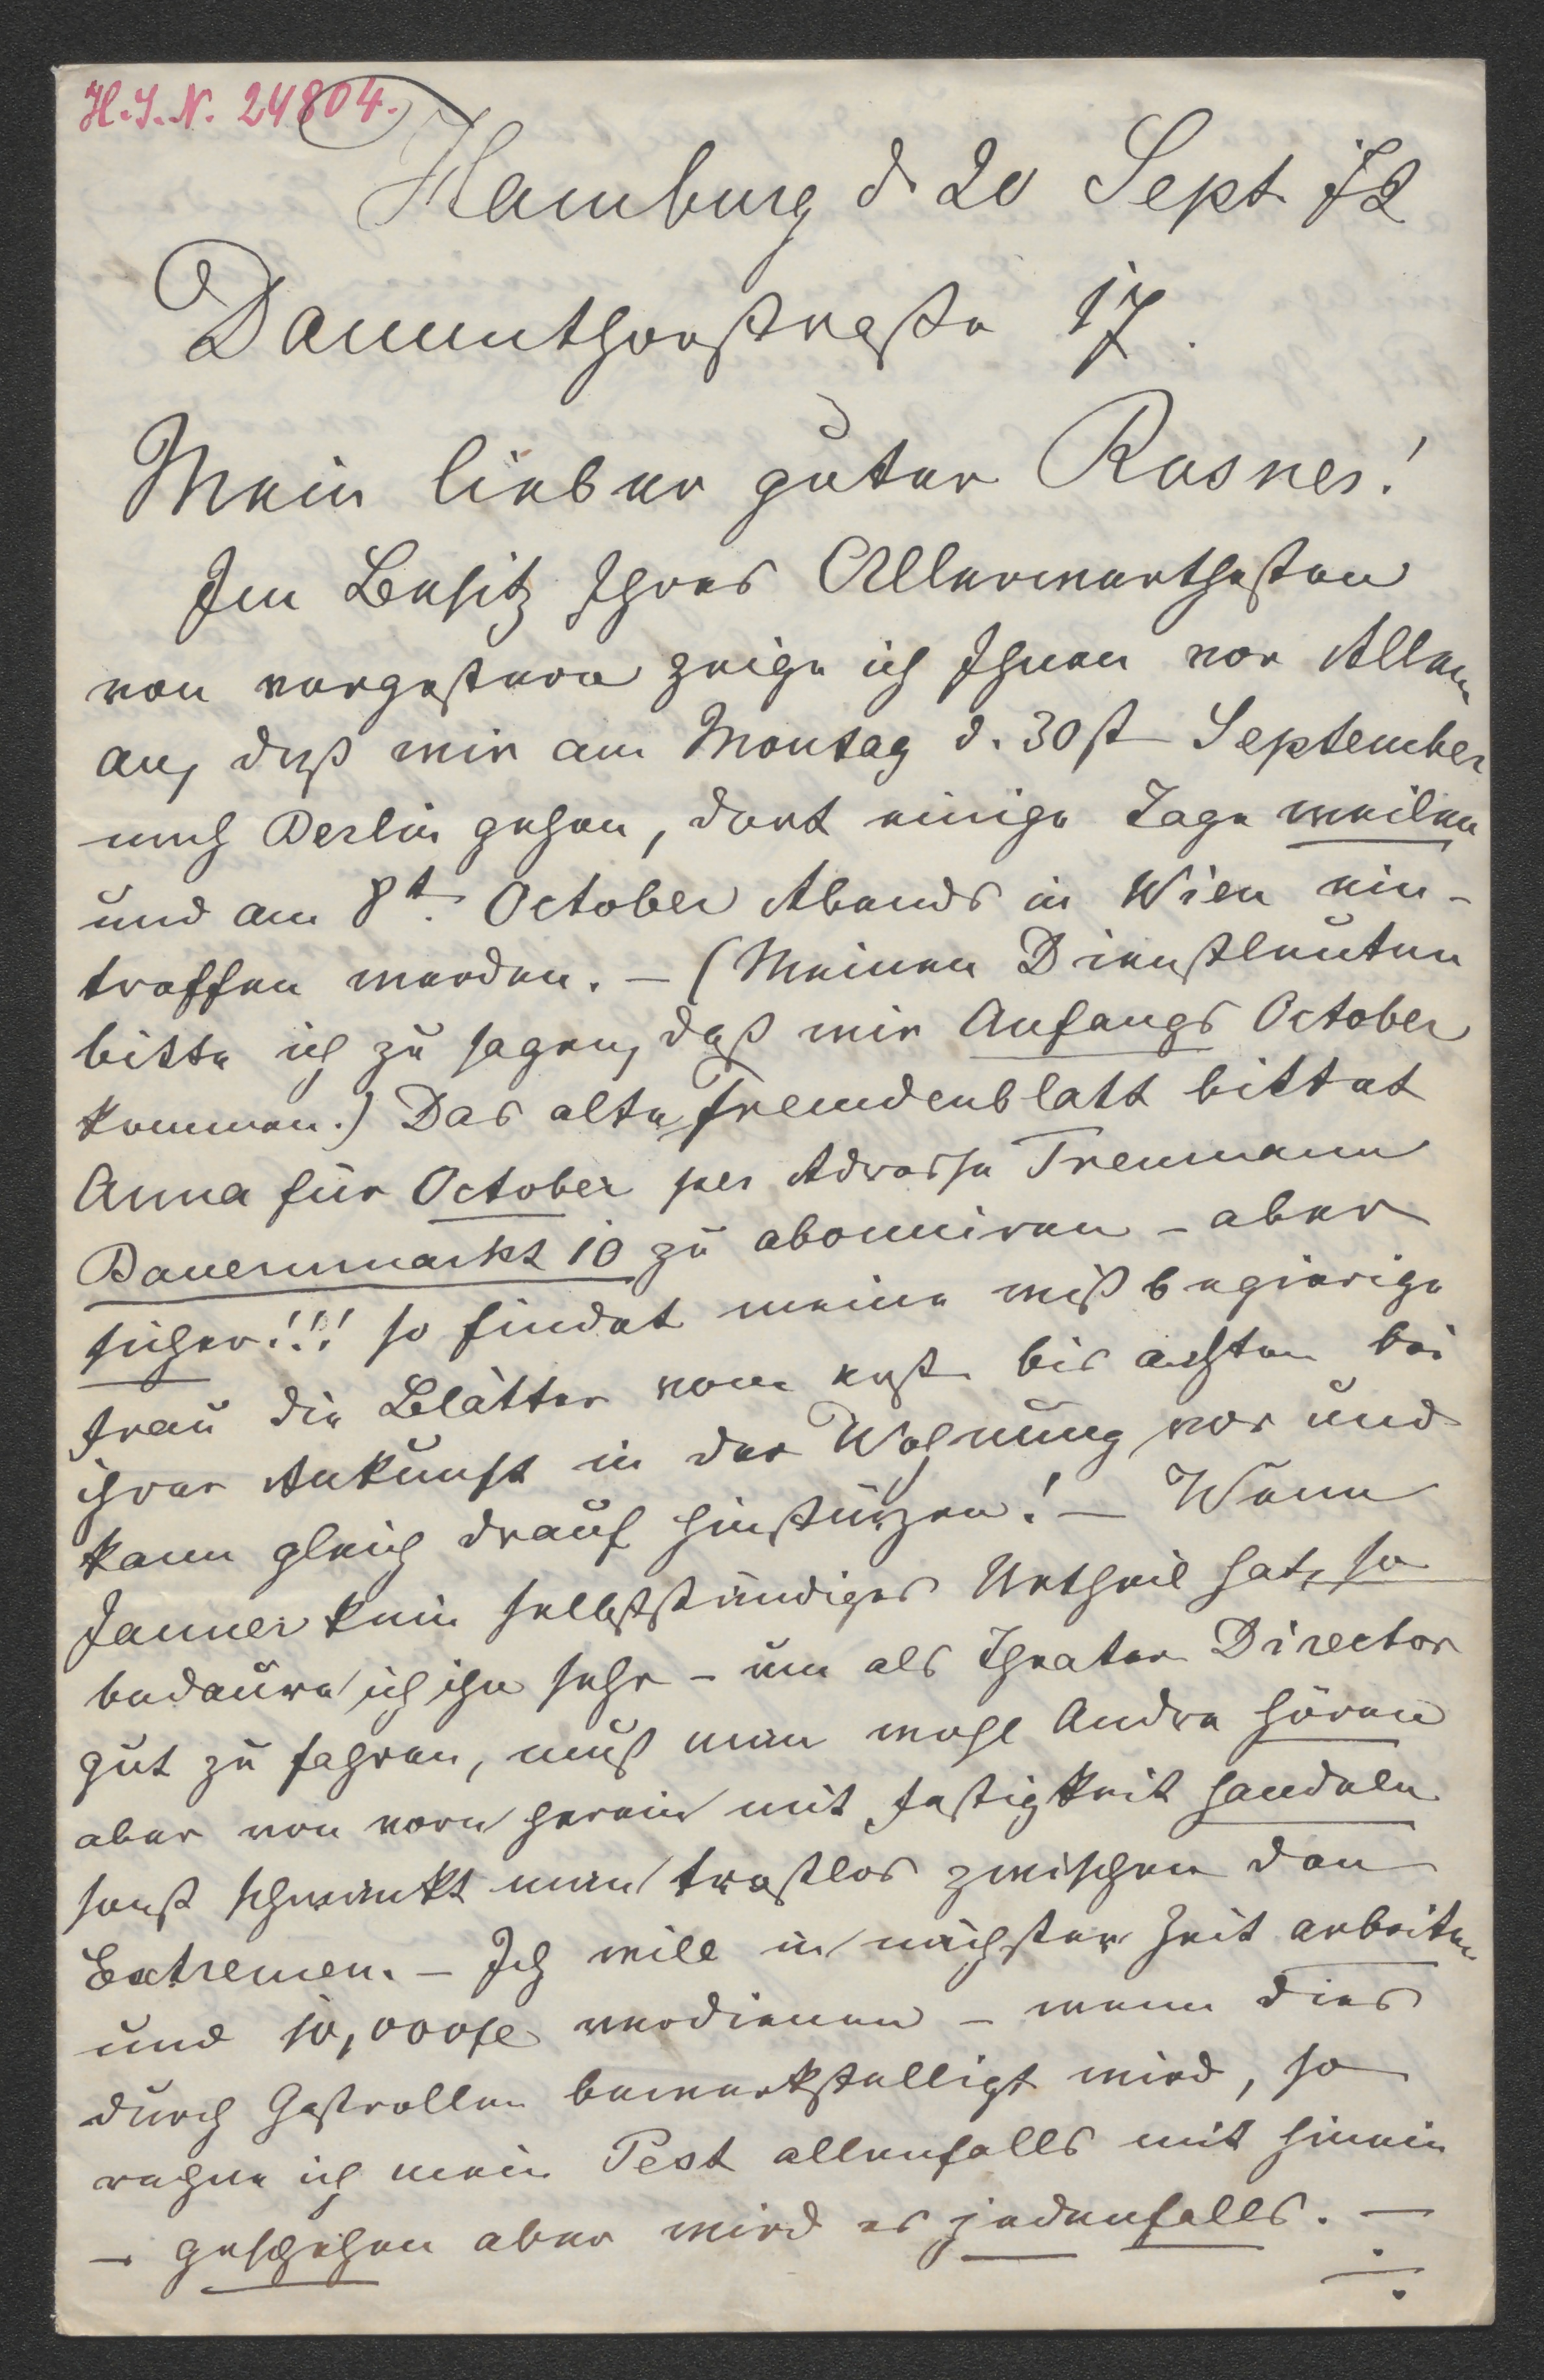 H.I.N. 24804.
Hamburg d 20 Sept 72
Dammthorstraße 17.
Mein lieber guter Rosner!
Im Besitz Ihres Allerwerthesten
von vorgestern zeige ich Ihnen vor Allem
an, daß wir am Montag d. 30st September
nach Berlin gehen, dort einige Tage weilen
und am 8t. October Abends in Wien ein-
treffen werden. – (Meinen Dienstleuten
bitte ich zu sagen, daß wir Anfangs October
kommen.) Das alte Fremdenblatt bittet
Anna für October per Adresse Treumann
Bauernmarkt 10 zu abonniren – aber
sicher!!! so findet meine wißbegierige
Frau die Blätter vom erst. bis achten bei
ihrer Ankunft in der Wohnung vor und
kann gleich drauf hinstürzen! – Wenn
Jauner kein selbstständiges Urtheil hat, so
bedaure ich ihn sehr – um als Theater Director
gut zu fahren, muß man wohl Andre hören
aber von vorn herein mit Festigkeit handeln
sonst schwankt man trostlos zwischen den
Extremen. – Ich will in nächster Zeit arbeiten
und 10,000 fl verdienen – wenn dies
durch Gastrollen bewerkstelligt wird, so
rechne ich mein Pest allenfalls mit hinein
– geschehen aber wird es jedenfalls. –